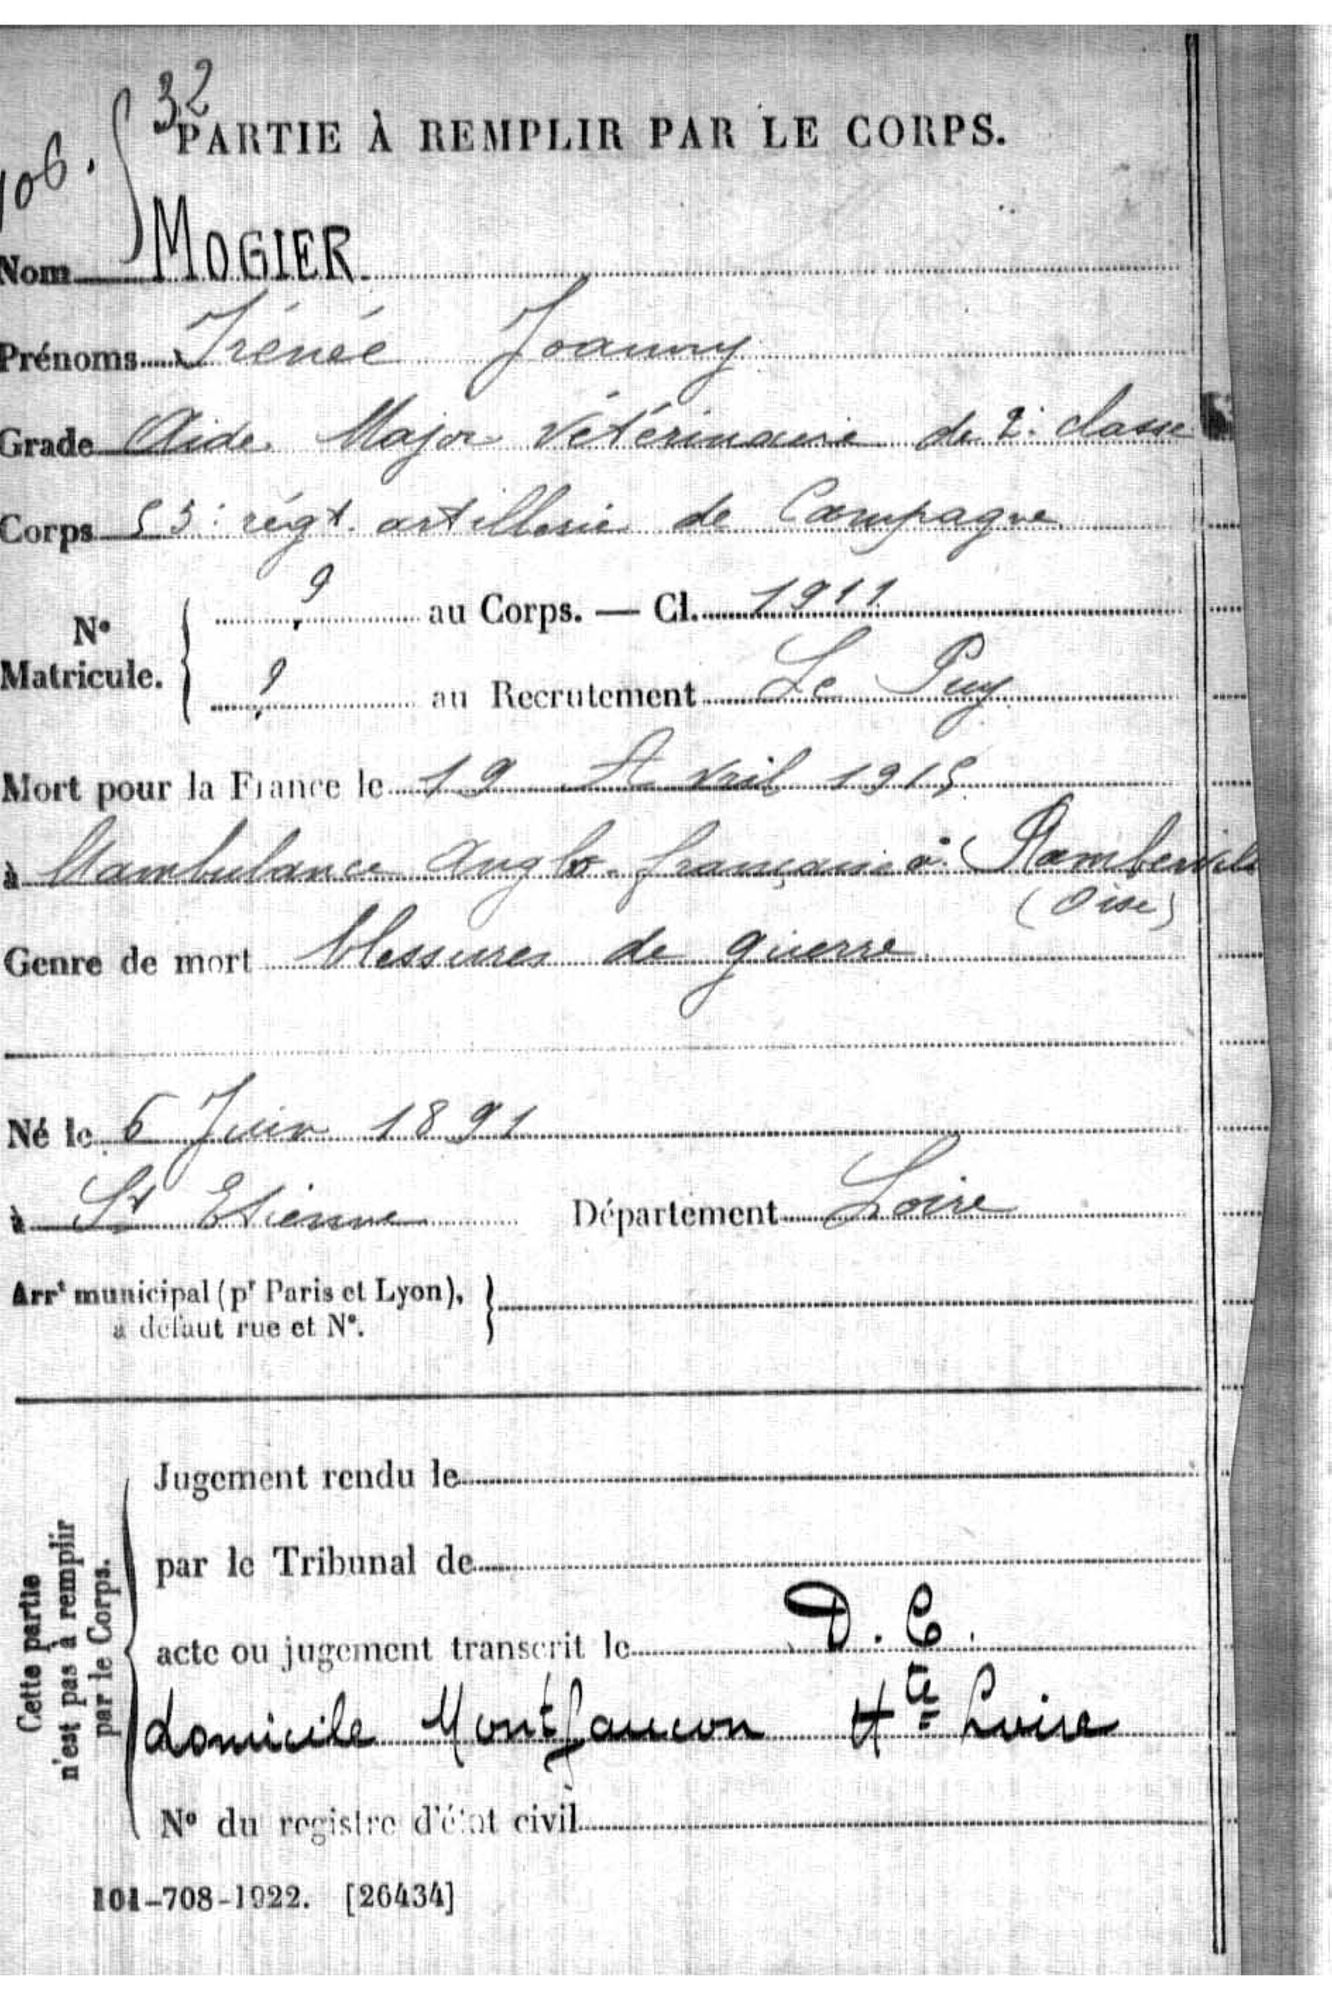 32
106.
PARTIE À REMPLIR PAR LE CORPS.
Nom MOGIER
Prénoms Irénée Joanny
Grade Aide Major Vétérinaire de 2e classe
Corps 53e régt. artillerie de Campagne
N° Matricule. { ? au Corps. — Cl. 1911
? au Recrutement Le Puy
Mort pour la France le 19 Avril 1915
à l'ambulance anglo-française à
(Oise)
Genre de mort blessures de guerre
Né le 6 Juin 1891
à St Etienne Département Loire
Arrt municipal (pr Paris et Lyon),
à défaut rue et N°.
Cette partie
n'est pas à remplir
par le Corps.
Jugement rendu le
par le Tribunal de
acte ou jugement transcrit le D. C.
domicile Montfaucon Hte Loire
N° du registre d'état civil
101-708-1922. [26434]